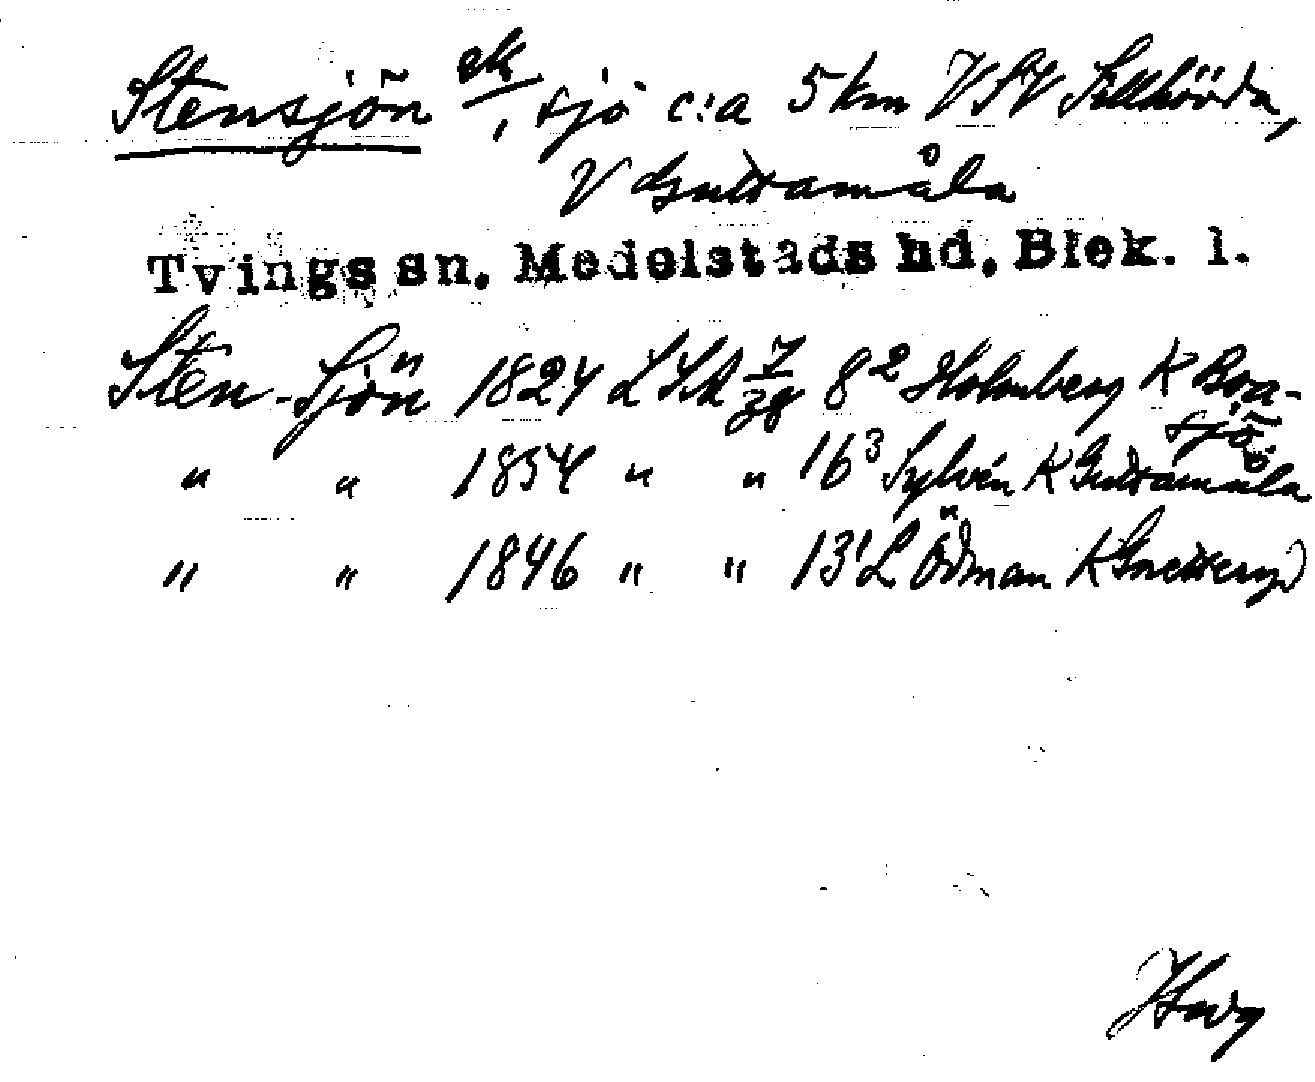 Stensjön ek, sjö c:a 5 km VSV Sillhövda,
V Guttamåla
Tvings sn. Medelstads hd. Blek. l.
Sten-Sjön 1824 LSA 7/38 8² Holmberg K Bora-
sjö
" " 1854 " " 16³ Sylvén K Guttamåla
" " 1846 " " 13¹ L Ödman K Gnetteryd